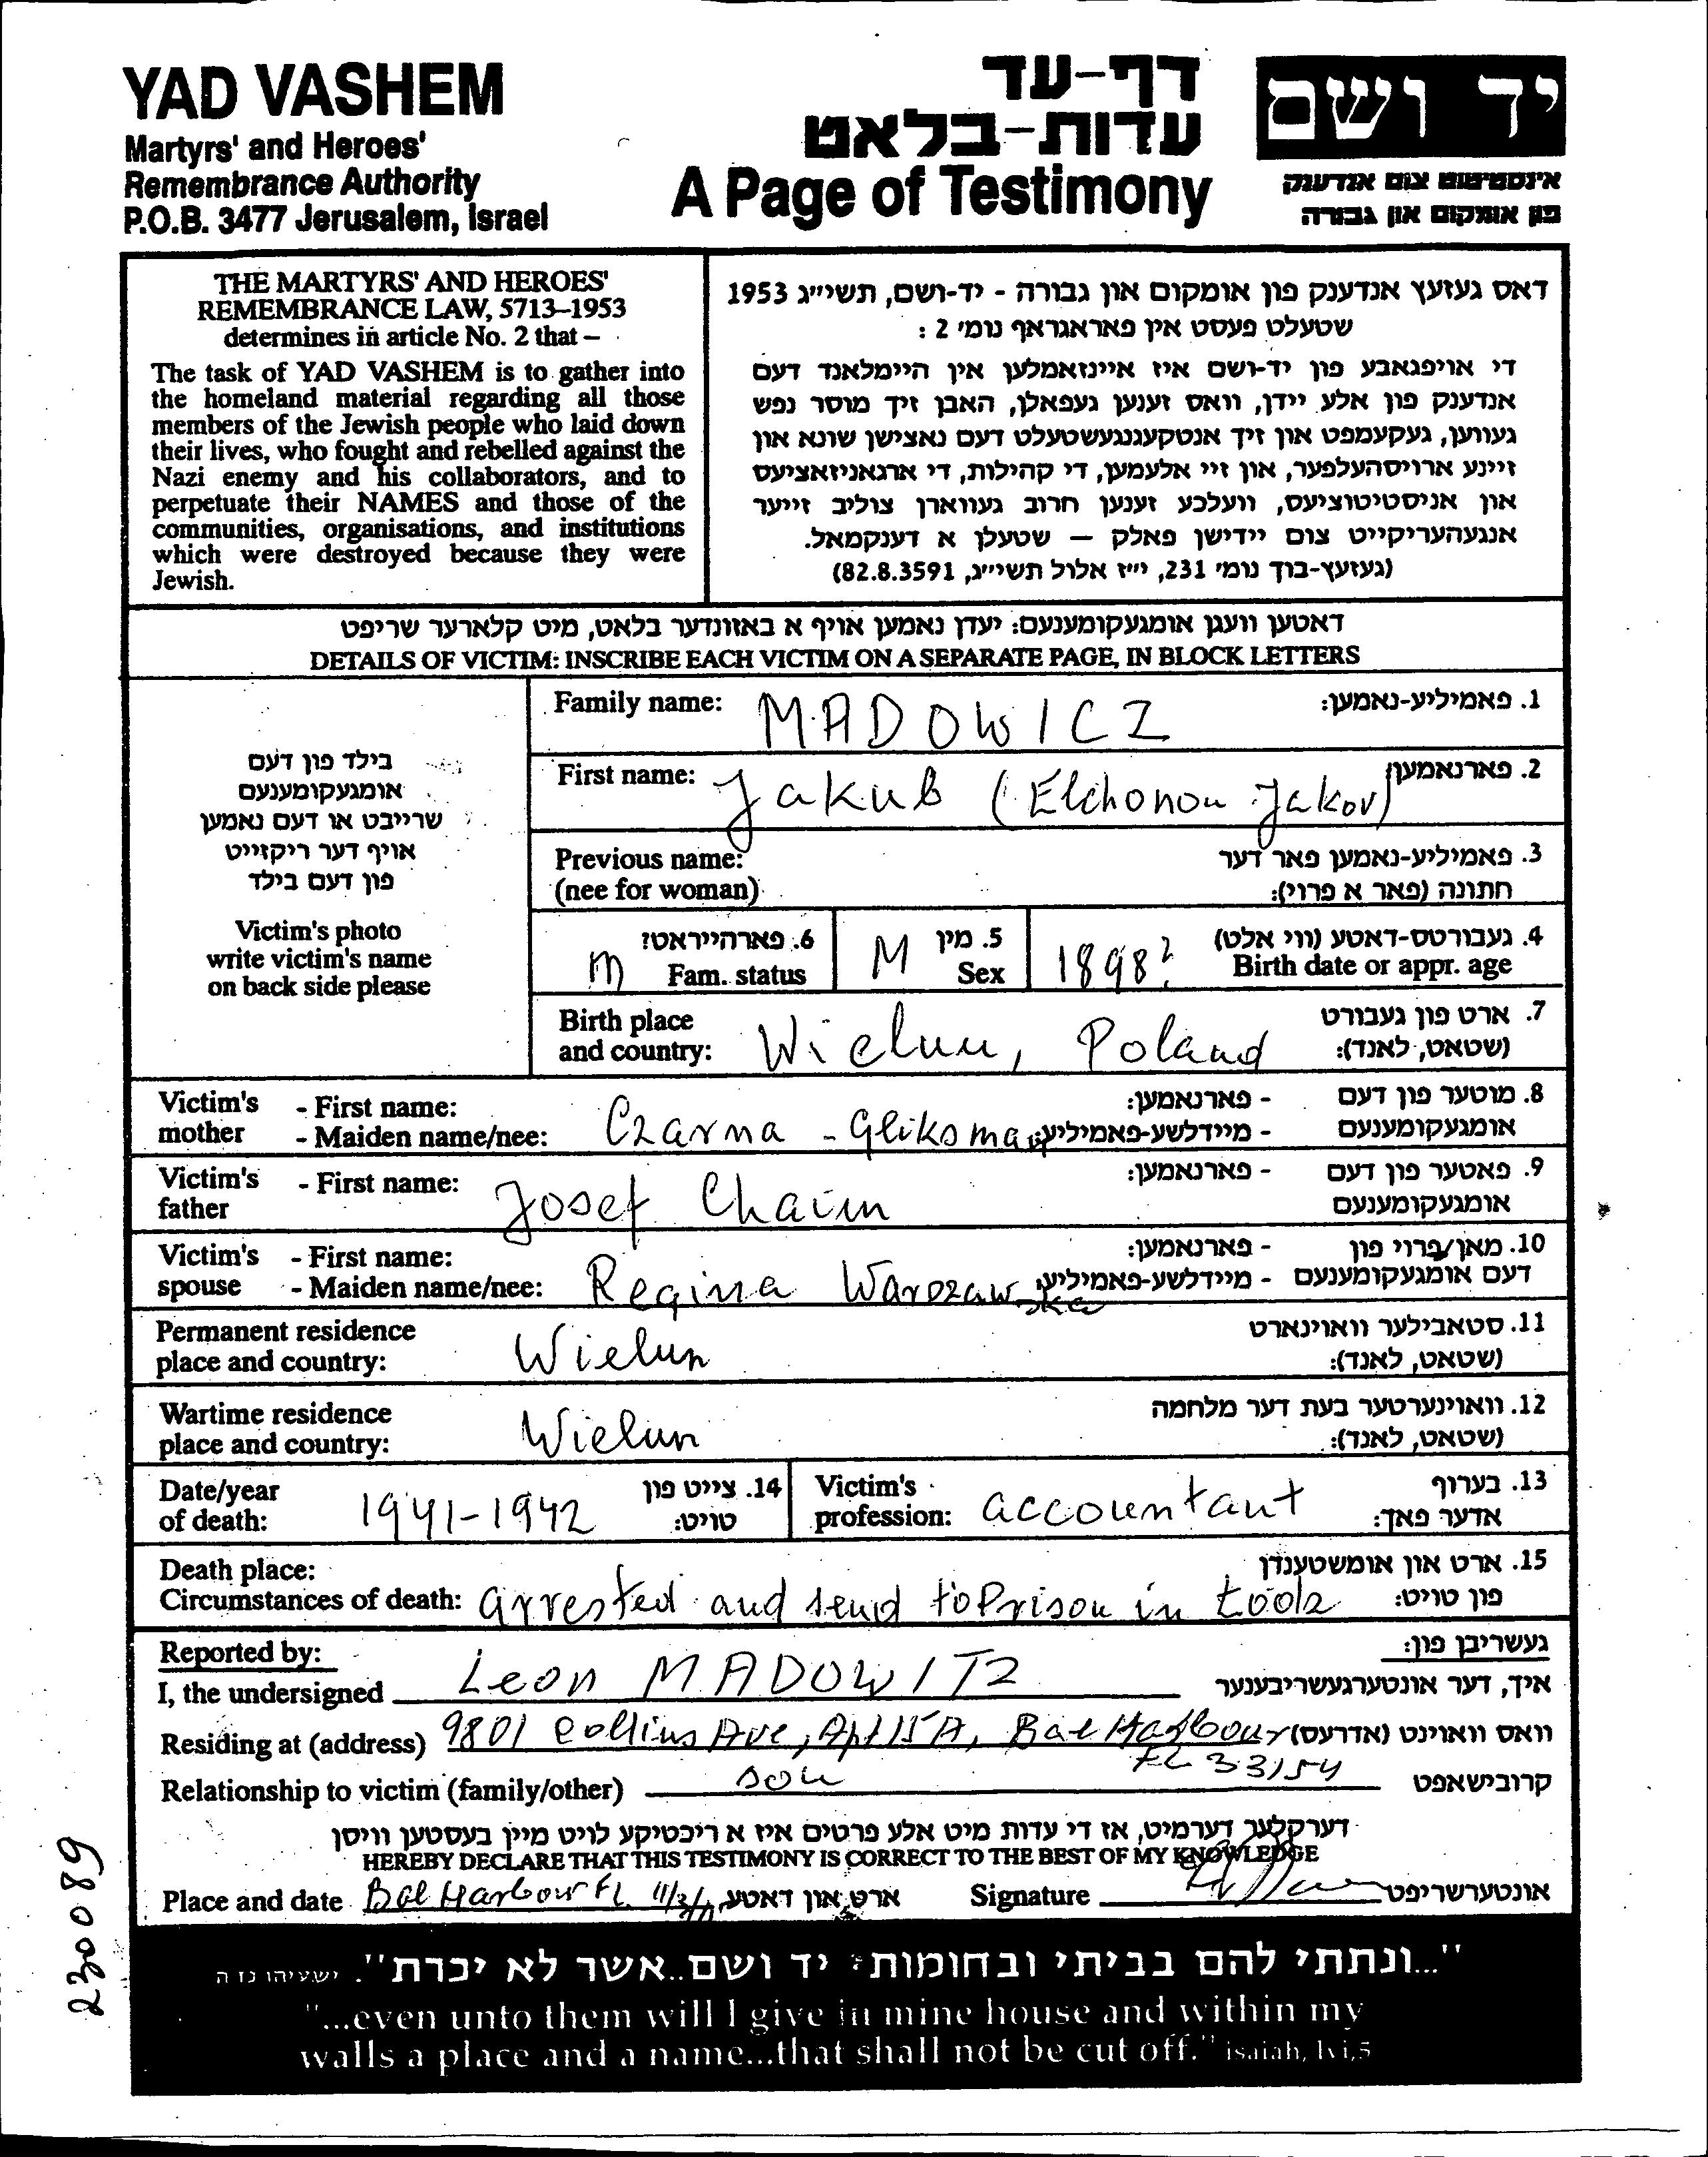 YAD VASHEM
Martyrs' and Heroes'
Remembrance Authority
P.O.B. 3477 Jerusalem, Israel
דף-עד
עדות-בלאט
A Page of Testimony
יד ושם
אינסטיטוט צום אנדענק
פון אומקום און גבורה
THE MARTYRS' AND HEROES'
REMEMBRANCE LAW, 5713–1953
determines in article No. 2 that –
The task of YAD VASHEM is to gather into
the homeland material regarding all those
members of the Jewish people who laid down
their lives, who fought and rebelled against the
Nazi enemy and his collaborators, and to
perpetuate their NAMES and those of the
communities, organisations, and institutions
which were destroyed because they were
Jewish.
דאס געזעץ אנדענק פון אומקום און גבורה - יד-ושם, תשי״ג 1953
שטעלט פעסט אין פאראגראף נומ׳ 2 :
די אויפגאבע פון יד-ושם איז איינזאמלען אין היימלאנד דעם
אנדענק פון אלע יידן, וואס זענען געפאלן, האבן זיך מוסר נפש
געווען, געקעמפט און זיך אנטקעגנגעשטעלט דעם נאצישן שונא און
זיינע ארויסהעלפער, און זיי אלעמען, די קהילות, די ארגאניזאציעס
און אניסטיטוציעס, וועלכע זענען חרוב געווארן צוליב זייער
אנגעהעריקייט צום יידישן פאלק – שטעלן א דענקמאל.
(געזעץ-בוך נומ׳ 231, י״ז אלול תשי״ג, 82.8.3591)
דאטען וועגן אומגעקומענעם: יעדן נאמען אויף א באזונדער בלאט, מיט קלארער שריפט
DETAILS OF VICTIM: INSCRIBE EACH VICTIM ON A SEPARATE PAGE, IN BLOCK LETTERS
בילד פון דעם
אומגעקומענעם
שרייבט או דעם נאמען
אויף דער ריקזייט
פון דעם בילד
Victim's photo
write victim's name
on back side please
Family name: MADOWICZ 1. פאמיליע-נאמען:
First name: Jakub (Elchonon Jakov) 2. פארנאמען
Previous name: 3. פאמיליע-נאמען פאר דער
(nee for woman) חתונה (פאר א פרוי):
6. פארהייראט? 5. מין 4. געבורטס-דאטע (ווי אלט)
m Fam. status M Sex 1898? Birth date or appr. age
Birth place 7. ארט פון געבורט
and country: Wielun, Poland (שטאט, לאנד):
Victim's - First name: - פארנאמען: 8. מוטער פון דעם
mother - Maiden name/nee: Czarna - Gliksman - מיידלשע-פאמיליע: אומגעקומענעם
Victim's - First name: - פארנאמען: 9. פאטער פון דעם
father Josef Chaim אומגעקומענעם
Victim's - First name: - פארנאמען: 10. מאן/פרוי פון
spouse - Maiden name/nee: Regina Warszawska - מיידלשע-פאמיליע: דעם אומגעקומענעם
Permanent residence 11. סטאבילער וואוינארט
place and country: Wielun (שטאט, לאנד):
Wartime residence 12. וואוינערטער בעת דער מלחמה
place and country: Wielun (שטאט, לאנד):
Date/year 14. צייט פון Victim's 13. בערוף
of death: 1941-1942 טויט: profession: accountant אדער פאך:
Death place: 15. ארט און אומשטענדן
Circumstances of death: arrested and send to Prison in Łódz פון טויט:
Reported by: געשריבן פון:
I, the undersigned Leon MADOWITZ איך, דער אונטערגעשריבענער
Residing at (address) 9801 Collins Ave, Apt 15A, Bal Harbour וואס וואוינט (אדרעס)
FL 33154
Relationship to victim (family/other) son קרובישאפט
דערקלער דערמיט, אז די עדות מיט אלע פרטים איז א ריכטיקע לויט מיין בעסטען וויסן
HEREBY DECLARE THAT THIS TESTIMONY IS CORRECT TO THE BEST OF MY KNOWLEDGE
Place and date Bal Harbour FL ארט און דאטע Signature אונטערשריפט
230089
"...ונתתי להם בביתי ובחומותי יד ושם..אשר לא יכרת". ישעיהו נו ה
"...even unto them will I give in mine house and within my
walls a place and a name...that shall not be cut off." isaiah, lvi,5